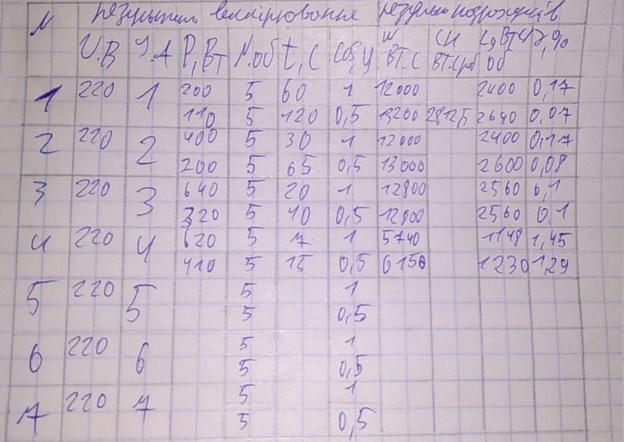 N результати вимірювання результати розрахунків
U.В I.А P,Вт N.об t,с cosφ W Вт.с СН Вт.с/об C₀ Вт.с/об γ,%
1 220 1 200 5 60 1 12000 2400 0,17
110 5 120 0,5 13200 2812,5 2640 0,07
2 220 2 400 5 30 1 12000 2400 0,17
200 5 65 0,5 13000 2600 0,08
3 220 3 640 5 20 1 12800 2560 0,1
320 5 40 0,5 12800 2560 0,1
4 220 4 820 5 7 1 5740 1148 1,45
410 5 15 0,5 6150 1230 1,29
5 220 5 5 1
5 0,5
6 220 6 5 1
5 0,5
7 220 7 5 1
5 0,5